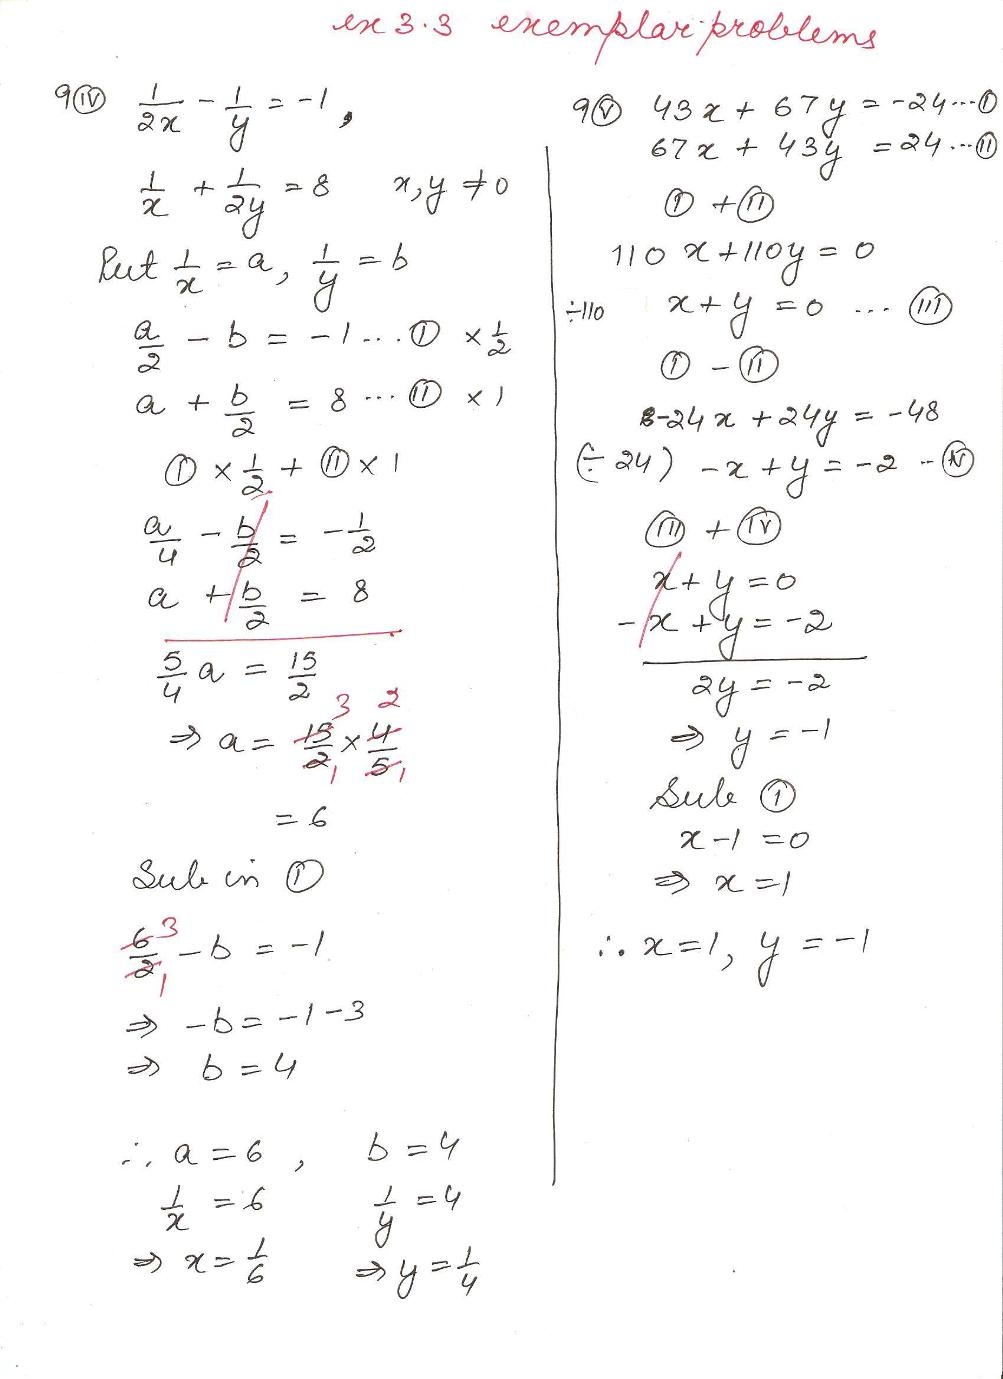 ex 3.3 exemplar problems
9(iv) 1/2x - 1/y = -1,
1/x + 1/2y = 8 x, y ≠ 0
Put 1/x = a, 1/y = b
a/2 - b = -1 ... (I) × 1/2
a + b/2 = 8 ... (II) × 1
(I) × 1/2 + (II) × 1
a/4 - b/2 = -1/2
a + b/2 = 8
5/4 a = 15/2
⇒ a = 15/2 × 4/5 3 2 1 1
= 6
Sub in (I)
6/2 - b = -1 3 1
⇒ -b = -1-3
⇒ b = 4
∴ a = 6, b = 4
1/x = 6 1/y = 4
⇒ x = 1/6 ⇒ y = 1/4
9(v) 43x + 67y = -24 ... (I)
67x + 43y = 24 ... (II)
(I) + (II)
110x + 110y = 0
÷110 x + y = 0 ... (III)
(I) - (II)
-24x + 24y = -48
(÷ 24) -x + y = -2 .. (IV)
(III) + (IV)
x + y = 0
-x + y = -2
2y = -2
⇒ y = -1
Sub (I)
x - 1 = 0
⇒ x = 1
∴ x = 1, y = -1